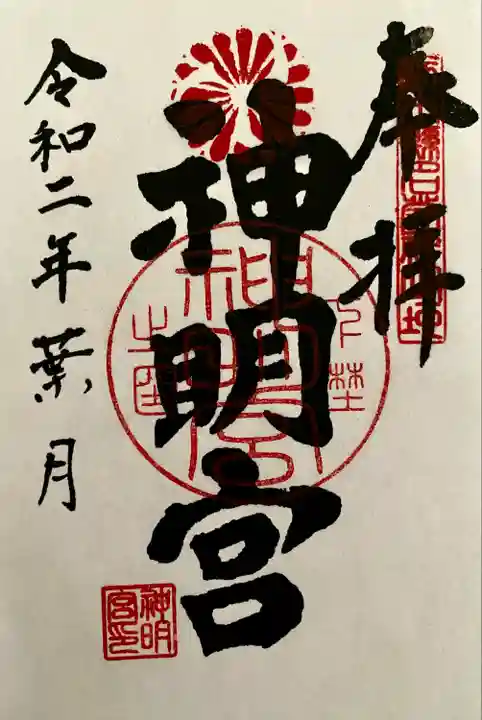 奉拝
神明宮
令和二年葉月
神明
宮印